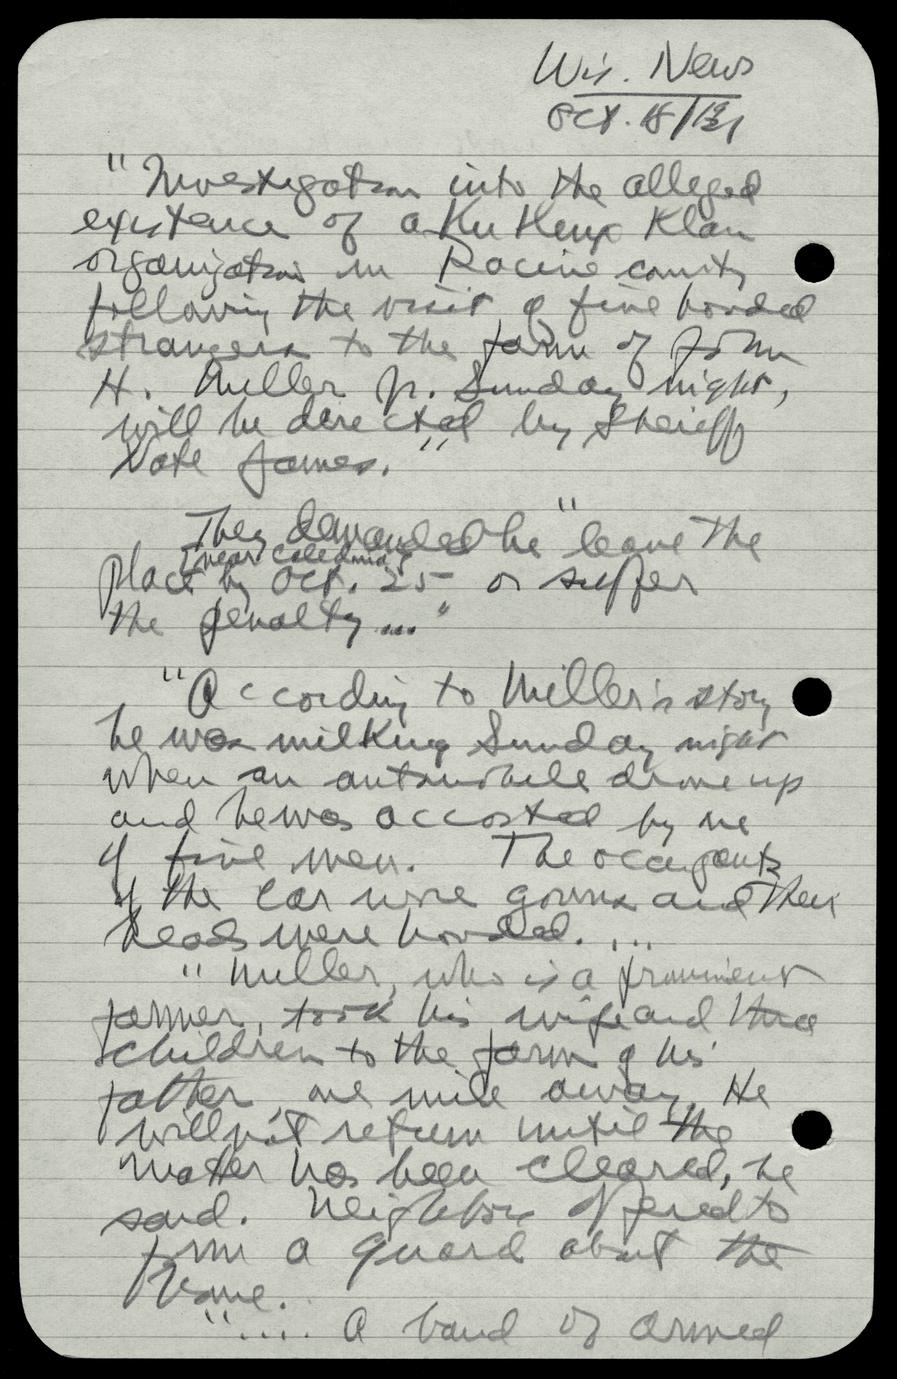 Wis. News
Oct. 18/1921
"Investigation into the alleged
existence of a Ku Klux Klan
organization in Racine county
following the visit of five hooded
strangers to the farm of John
H. Miller Jr. Sunday night,
will be directed by Sheriff
Nate James."
They demanded he "leave the
[near Caledonia]
place by Oct. 25 or suffer
the penalty..."
"According to Miller's story
he was milking Sunday night
when an automobile drove up
and he was accosted by one
of five men. The occupants
of the car wore gowns and their
heads were hooded. ...
"Miller, who is a prominent
farmer, took his wife and three
children to the farm of his
father, one mile away. He
will not return until the
matter has been cleared, he
said. Neighbors offered to
form a guard about the
home.
".... A band of armed